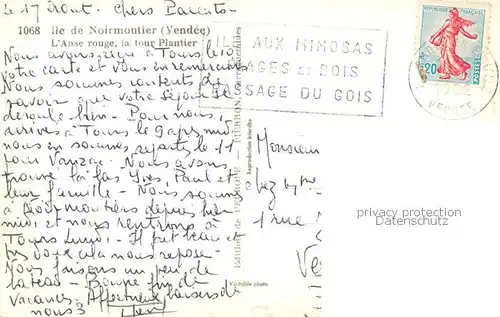 Le 17 Août. Chers Parents.
1068 Ile de Noirmoutier (Vendée)
L'Anse rouge, la tour Plantier
Nous avons reçu à Tours
votre carte et vous en remercions
Nous sommes contents de
savoir que votre séjour se
déroule bien - Pour nous,
arrivés à Tours le 9 après midi
nous en sommes repartis le 11
pour Vanzac. Nous avons
trouvé là-bas Yves, Paul et
leur famille - Nous sommes
à Noirmoutiers depuis hier
midi et nous rentrons à
Tours Lundi. Il fait beau et
nous repose -
Nous faisons un peu de
bateau - Bonne fin de
vacances. Affectueux baisers de
nous 3
Edition de
PIERRON
Reproduction interdite
Véritable photo
AUX MIMOSAS
PLAGES ET BOIS
PASSAGE DU GOIS
0,20
POSTES
Monsieur
chez Mme
1 rue
privacy protection
Datenschutz